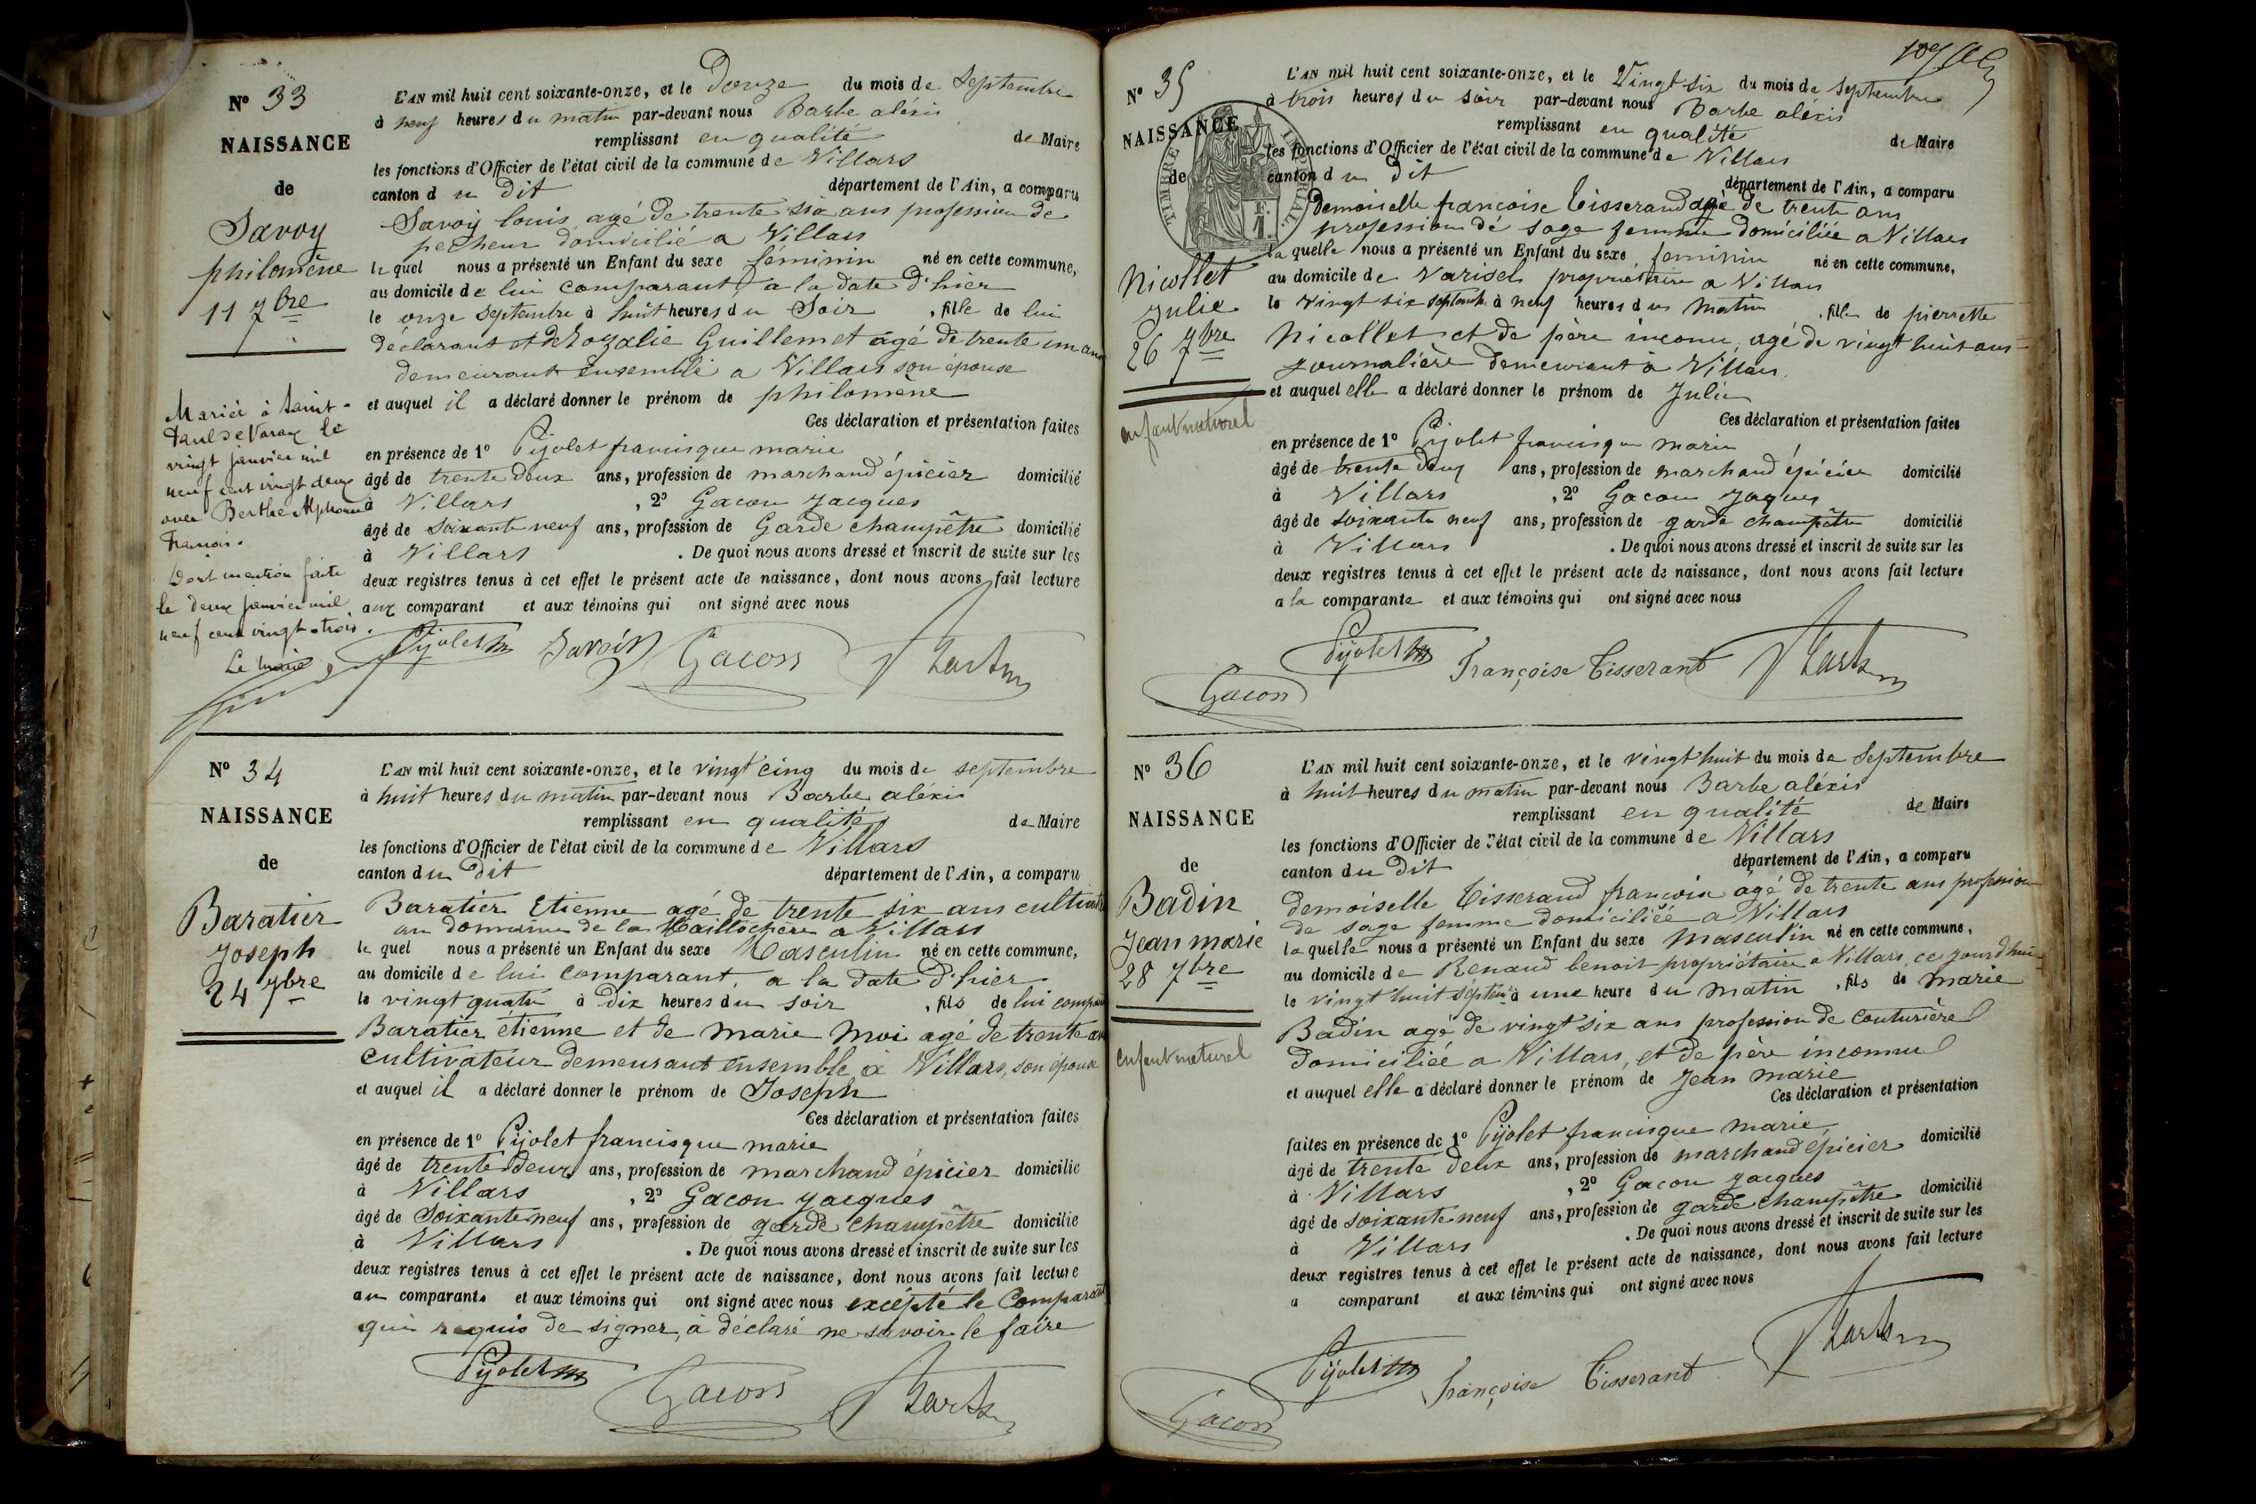 N° 33
NAISSANCE
de
Savoy
philomène
11 7bre
Mariée à Saint-
Paul de Varax le
vingt janvier mil
neuf cent vingt deux
avec Berthe Alphonse
François.
Dont mention faite
le deux janvier mil
neuf cent vingt-trois.
Le maire,
L'AN mil huit cent soixante-onze, et le Douze du mois de Septembre
à neuf heures du matin par-devant nous Barbe aléxis
remplissant en qualité de Maire
les fonctions d'Officier de l'état civil de la commune de Villars
canton du Dit département de l'Ain, a comparu
Savoy louis agé de trente six ans profession de
pecheur domicilié a Villars
lequel nous a présenté un Enfant du sexe féminin né en cette commune,
au domicile de lui comparant, a la date d'hier
le onze Septembre à huit heures du Soir, fille de lui
déclarant et de Rozalie Guillemet agé de trente un ans
demeurant ensemble a Villars son épouse
et auquel il a déclaré donner le prénom de philomène
Ces déclaration et présentation faites
en présence de 1° Pijolet francisque marie
âgé de trente deux ans, profession de marchand épicier domicilié
à Villars, 2° Gacon Jacques
âgé de soixante neuf ans, profession de Garde champêtre domicilié
à Villars. De quoi nous avons dressé et inscrit de suite sur les
deux registres tenus à cet effet le présent acte de naissance, dont nous avons fait lecture
aux comparant et aux témoins qui ont signé avec nous
Pijolet Savoy Gacon ABarbe
N° 34
NAISSANCE
de
Baratier
Joseph
24 7bre
L'AN mil huit cent soixante-onze, et le vingt cinq du mois de septembre
à huit heures du matin par-devant nous Barbe aléxis
remplissant en qualité de Maire
les fonctions d'Officier de l'état civil de la commune de Villars
canton du Dit département de l'Ain, a comparu
Baratier Etienne agé de trente six ans cultivateur
au domaine de la a Villars
lequel nous a présenté un Enfant du sexe Masculin né en cette commune,
au domicile de lui comparant, a la date d'hier
le vingt quatre à dix heures du soir, fils de lui comparant
Baratier étienne et de marie Moi agé de trente ans
cultivateur demeurant ensemble à Villars, son épouse
et auquel il a déclaré donner le prénom de Joseph
Ces déclaration et présentation faites
en présence de 1° Pijolet francisque marie
âgé de trente deux ans, profession de marchand épicier domicilié
à Villars, 2° Gacon Jacques
âgé de Soixante neuf ans, profession de garde champêtre domicilié
à Villars. De quoi nous avons dressé et inscrit de suite sur les
deux registres tenus à cet effet le présent acte de naissance, dont nous avons fait lecture
au comparant et aux témoins qui ont signé avec nous excépté le Comparant
qui requis de signer, à déclaré ne savoir le faire
Pijolet Gacon ABarbe
N° 35
NAISSANCE
de
Nicollet
Julie
26 7bre
enfant naturel
TIMBRE IMPÉRIAL.
L'AN mil huit cent soixante-onze, et le Vingt six du mois de septembre
à trois heures du soir par-devant nous Barbe aléxis
remplissant en qualité de Maire
les fonctions d'Officier de l'état civil de la commune de Villars
canton du Dit département de l'Ain, a comparu
Demoiselle françoise Tisserand agé de trente ans
profession de sage femme domiciliée a Villars
laquelle nous a présenté un Enfant du sexe feminin né en cette commune,
au domicile de Varisel propriétaire a Villars
le vingt six septembre à neuf heures du matin, fille de pierrette
Nicollet et de père inconnu, agé de vingt huit ans
journalière demeurant à Villars,
et auquel elle a déclaré donner le prénom de Julie
Ces déclaration et présentation faites
en présence de 1° Pijolet francisque marie
âgé de trente deux ans, profession de marchand épicier domicilié
à Villars, 2° Gacon Jaques
âgé de soixante neuf ans, profession de garde champêtre domicilié
à Villars. De quoi nous avons dressé et inscrit de suite sur les
deux registres tenus à cet effet le présent acte de naissance, dont nous avons fait lecture
a la comparante et aux témoins qui ont signé avec nous
Pijolet Françoise Tisserant ABarbe
Gacon
N° 36
NAISSANCE
de
Badin
Jean marie
28 7bre
enfant naturel
L'AN mil huit cent soixante-onze, et le vingt huit du mois de Septembre
à huit heures du matin par-devant nous Barbe aléxis
remplissant en qualité de Maire
les fonctions d'Officier de l'état civil de la commune de Villars
canton du Dit département de l'Ain, a comparu
demoiselle Tisserand françoise agé de trente ans profession
de sage femme domiciliée a Villars
laquelle nous a présenté un Enfant du sexe masculin né en cette commune,
au domicile de Renaud benoit propriétaire a Villars, ce jourd'hui
le vingt huit septem à une heure du matin, fils de marie
Badin agé de vingt six ans profession de couturière
domiciliée a Villars, et de père inconnu
et auquel elle a déclaré donner le prénom de Jean marie
Ces déclaration et présentation
faites en présence de 1° Pijolet francisque marie
âgé de trente deux ans, profession de marchand épicier domicilié
à Villars, 2° Gacon Jacques
âgé de soixante neuf ans, profession de garde champêtre domicilié
à Villars. De quoi nous avons dressé et inscrit de suite sur les
deux registres tenus à cet effet le présent acte de naissance, dont nous avons fait lecture
a comparant et aux témoins qui ont signé avec nous
Pijolet Françoise Tisserant ABarbe
Gacon